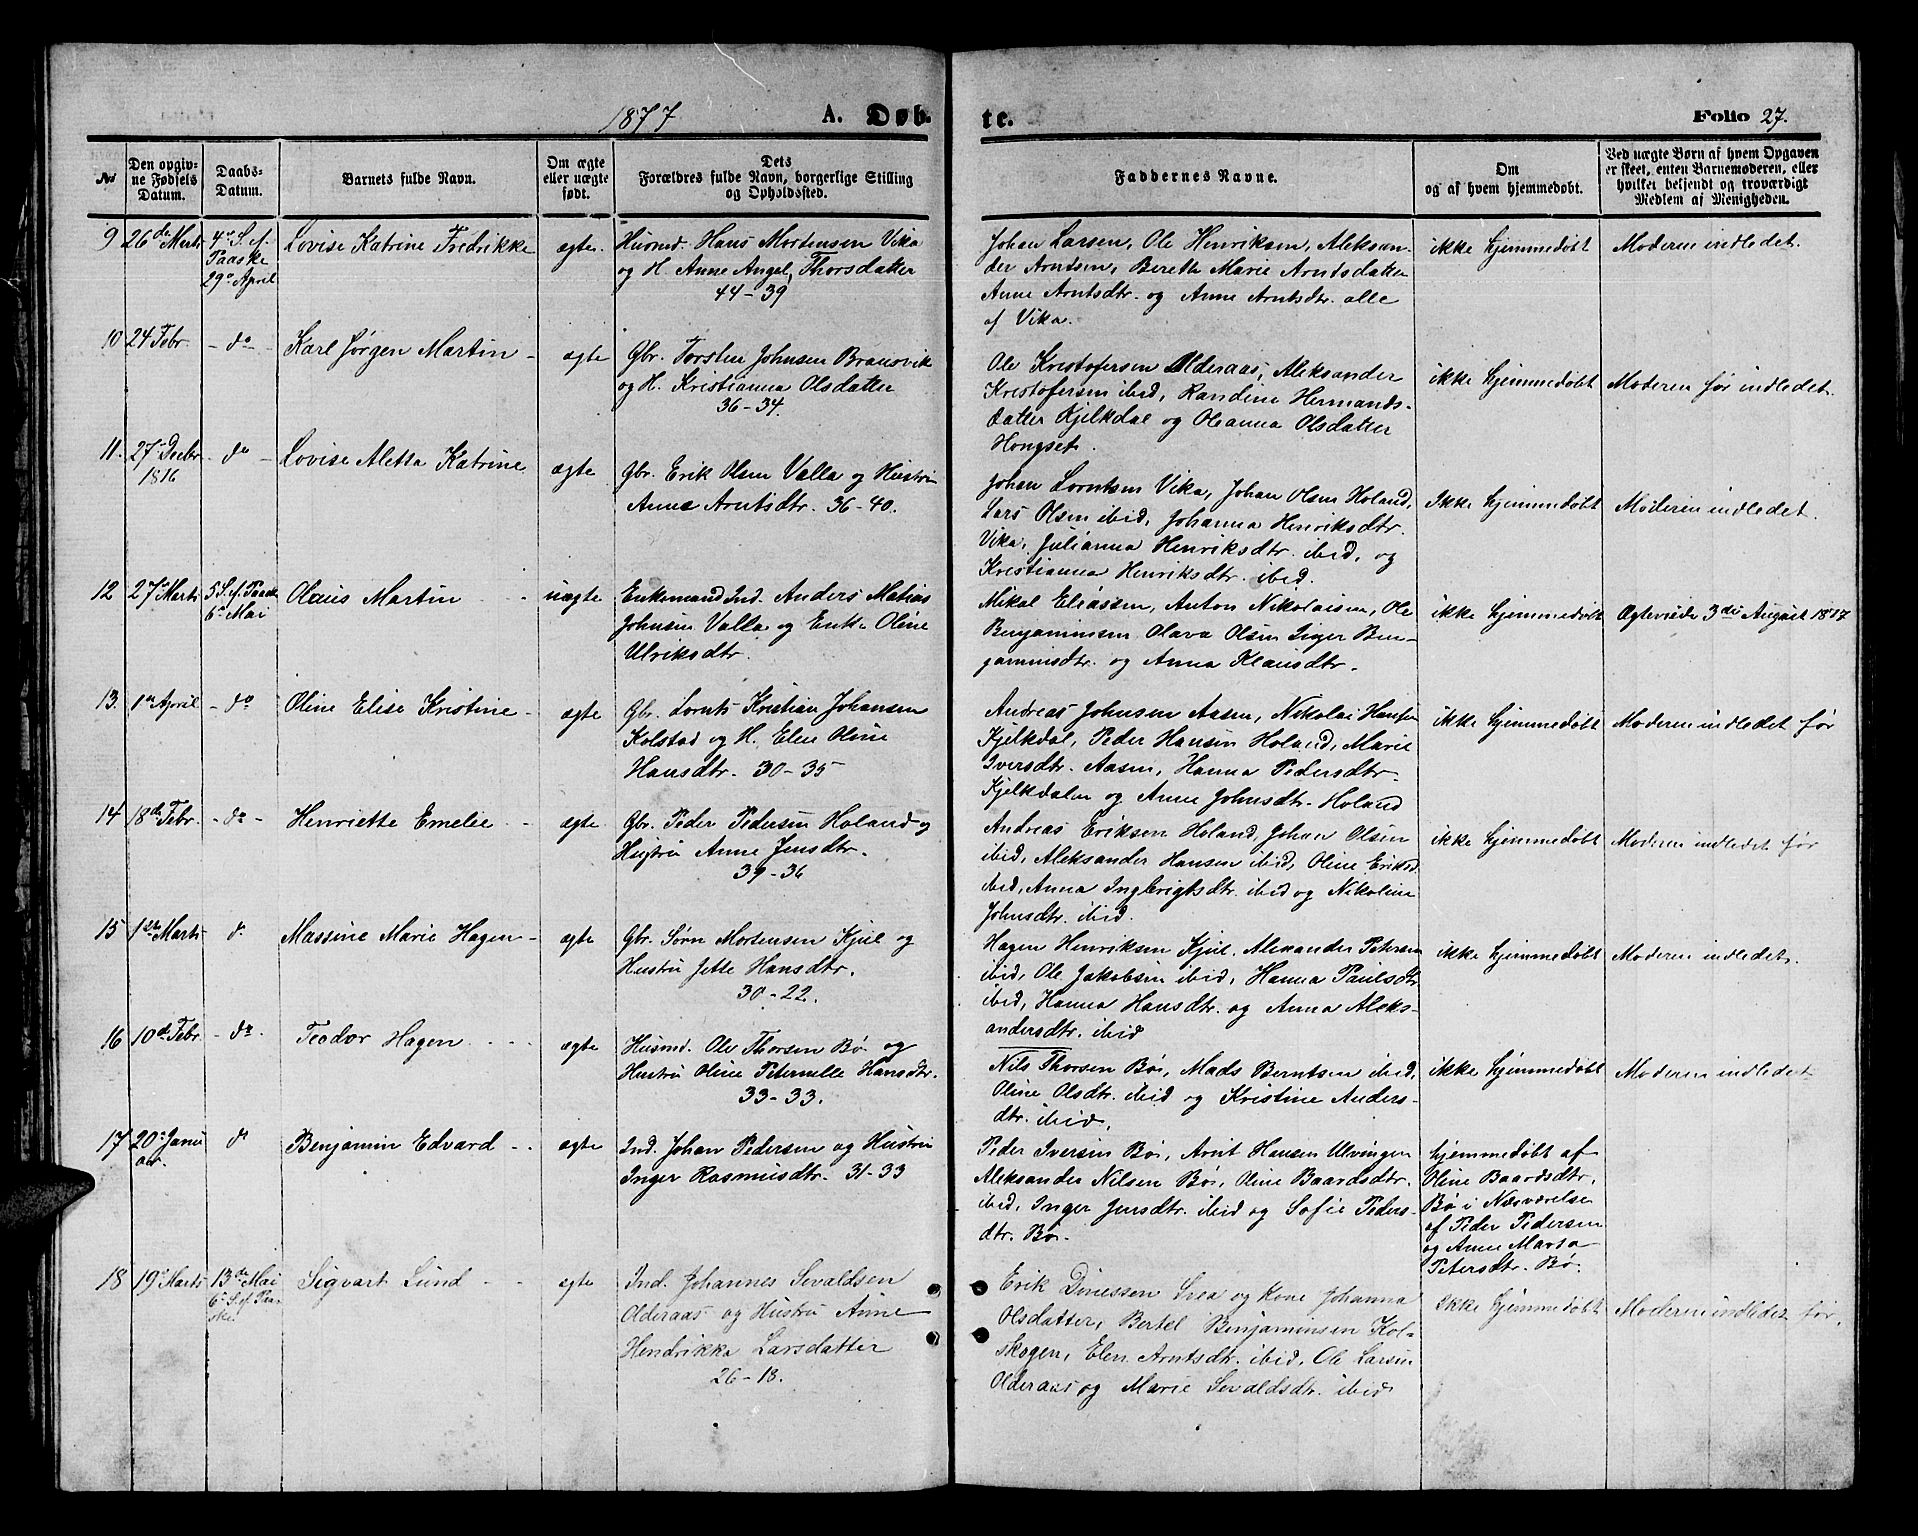 1877 A. Døb-
te. Folio 27.
No
Den opgiv-
ne Fødsels
Datum.
Daabs-
Datum.
Barnets fulde Navn.
Om ægte
eller uægte
født.
Dets
Forældres fulde Navn, borgerlige Stilling
og Opholdssted.
Faddernes Navne.
Om
og af hvem hjemmedøbt.
Ved uægte Børn af hvem Opgaven
er skeet, enten Barnemoderen, eller
hvilket bekjendt og troværdigt
Medlem af Menigheden.
9 26de Marts
4e S. ef.
Paaske
29e April
Lovise Katrine Fredrikke
ægte.
Husmd. Hans Mortensen Vika
og H. Anne Angel, Thorsdatter
44-39
Johan Larsen, Ole Henriksen, Aleksan-
der Arntsen, Berette Marie Arntsdatter
Anne Arntsdtr. og Anne Arntsdtr. alle
af Vika.
ikke hjemmedøbt
Moderen indledet.
10 24 Febr.
- do -
Karl Jørgen Martin -
ægte
Gbr. Torsten Johnsen Bransvik
og H. Kristianna Olsdatter
36-34.
Ole Kristofersen Olderaas, Aleksander
Kristofersen ibid, Randine Hermands-
datter Kjelkdal og Oleanna Olsdatter
Hongset.
ikke hjemmedøbt
Moderen før indledet.
11. 27de Decbr.
1816
do -
Lovise Aletta Katrine
ægte
Gbr. Erik Olsen Valla og Hustru
Anne Arntsdtr. 36-40.
Johan Lorntsen Vika, Johan Olsen Holand,
Lars Olsen ibid, Johanna Henriksdtr.
Vika, Julianna Henriksdtr. ibid, og
Kristianna Henriksdtr. ibid.
Ikke hjemmedøbt
Moderen indledet.
12 27de Marts
5 S. ef. Paaske
6e Mai
Olaus Martin - -
uægte
Enkemand Ind. Anders Matias
Johnsen Valla og Enke Oline
Ulriksdtr.
Mikal Eliassen, Anton Nikolaisen, Ole
Benjaminsen, Olava Olsen Inger Ben-
jaminsdtr. og Anna Klausdtr.
ikke hjemmedøbt
Ægteviede 3die August 1877
13. 1ste April
- do
Oline Elise Kristine -
ægte
Gbr. Lornts Kristian Johansen
Kolstad og H. Elen Oline
Hansdtr. 30-35
Andreas Johnsen Aasen, Nikolai Hansen
Kjelkdal, Peder Hansen Holand, Marie
Iversdtr. Aasen, Hanna Pedersdtr.
Kjelkdalen og Anne Johnsdtr. Holand
ikke hjemmedøbt
Moderen indledet før
14 18de Febr.
- do -
Henriette Emelie - -
ægte.
Gbr. Peder Pedersen Holand og
Hustru Anne Jensdtr.
39-36
Andreas Eriksen Holand, Johan Olsen
ibid, Aleksander Hansen ibid, Oline Eriksd.
ibid, Anna Inglerigtsdtr. ibid og Nikoline
Johnsdtr. ibid.
ikke hjemmedøbt
Moderen indledet før
15 1ste Marts
do
Massine Marie Hagen -
ægte
Gbr. Sørn Mortensen Kjul og
Hustru Jette Hansdtr.
30-22.
Hagen Henriksen Kjul, Alexander Petersen
ibid, Ole Jakobsen ibid, Hanna Paulsdtr.
ibid, Hanna Hansdtr. og Anna Aleks-
andersdtr. ibid
ikke hjemmedøbt
Moderen indledet.
16 10de Febr.
- do -
Teodor Hagen - - -
ægte
Husmd. Ole Thorsen Bø og
Hustru Oline Peternelle Hansdtr.
33-33.
Nils Thorsen Bø, Mads Berntsen ibid,
Oline Olsdtr. ibid og Kristine Anders-
dtr. ibid.
ikke hjemmedøbt
Moderen indledet
17 20de Janu
ar.
do
Benjamin Edvard - -
ægte
Ind. Johan Pedersen og Hustru
Inger Rasmusdtr. 31-33
Peder Iversen Bø, Arnt Hansen Ulvingen
Aleksander Nilsen Bø, Oline Baardsdtr.
ibid, Inger Jensdtr. ibid og Sofie Peders-
dtr. Bø.
hjemmedøbt af
Oline Baardsdtr,
Bø i Nærværelse
af Peder Pedersen
og Anne Marta
Petersdtr. Bø.
18 19de Marts
13de Mai
6e S. ef. Paa-
ske.
Sigvart Lund - -
ægte
Ind. Johannes Sevaldsen
Olderaas og Hustru Anne
Hendrikka Larsdatter
26-18.
Erik Dinessen og Kone Johanna
Olsdatter, Bertel Benjaminsen Kol-
skogen, Elen Arntsdtr. ibid, Ole Larsen
Olderaas og Marie Sevaldsdtr. ibid
ikke hjemmedøbt
Moderen indledet før.